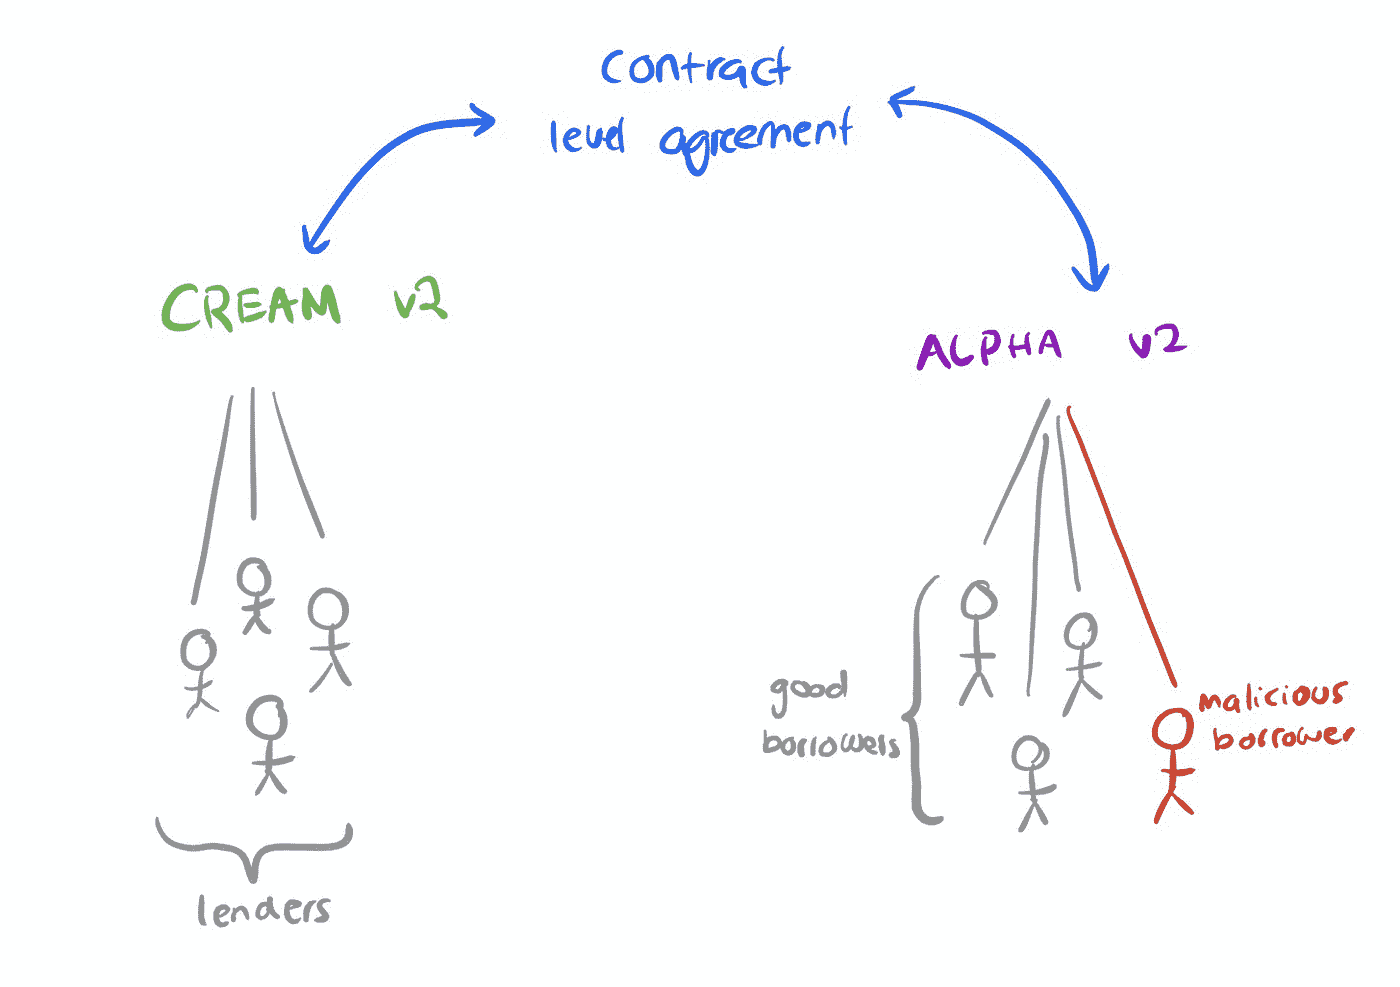 contract
level agreement
CREAM v2
ALPHA v2
good
borrowers
malicious
borrower
lenders